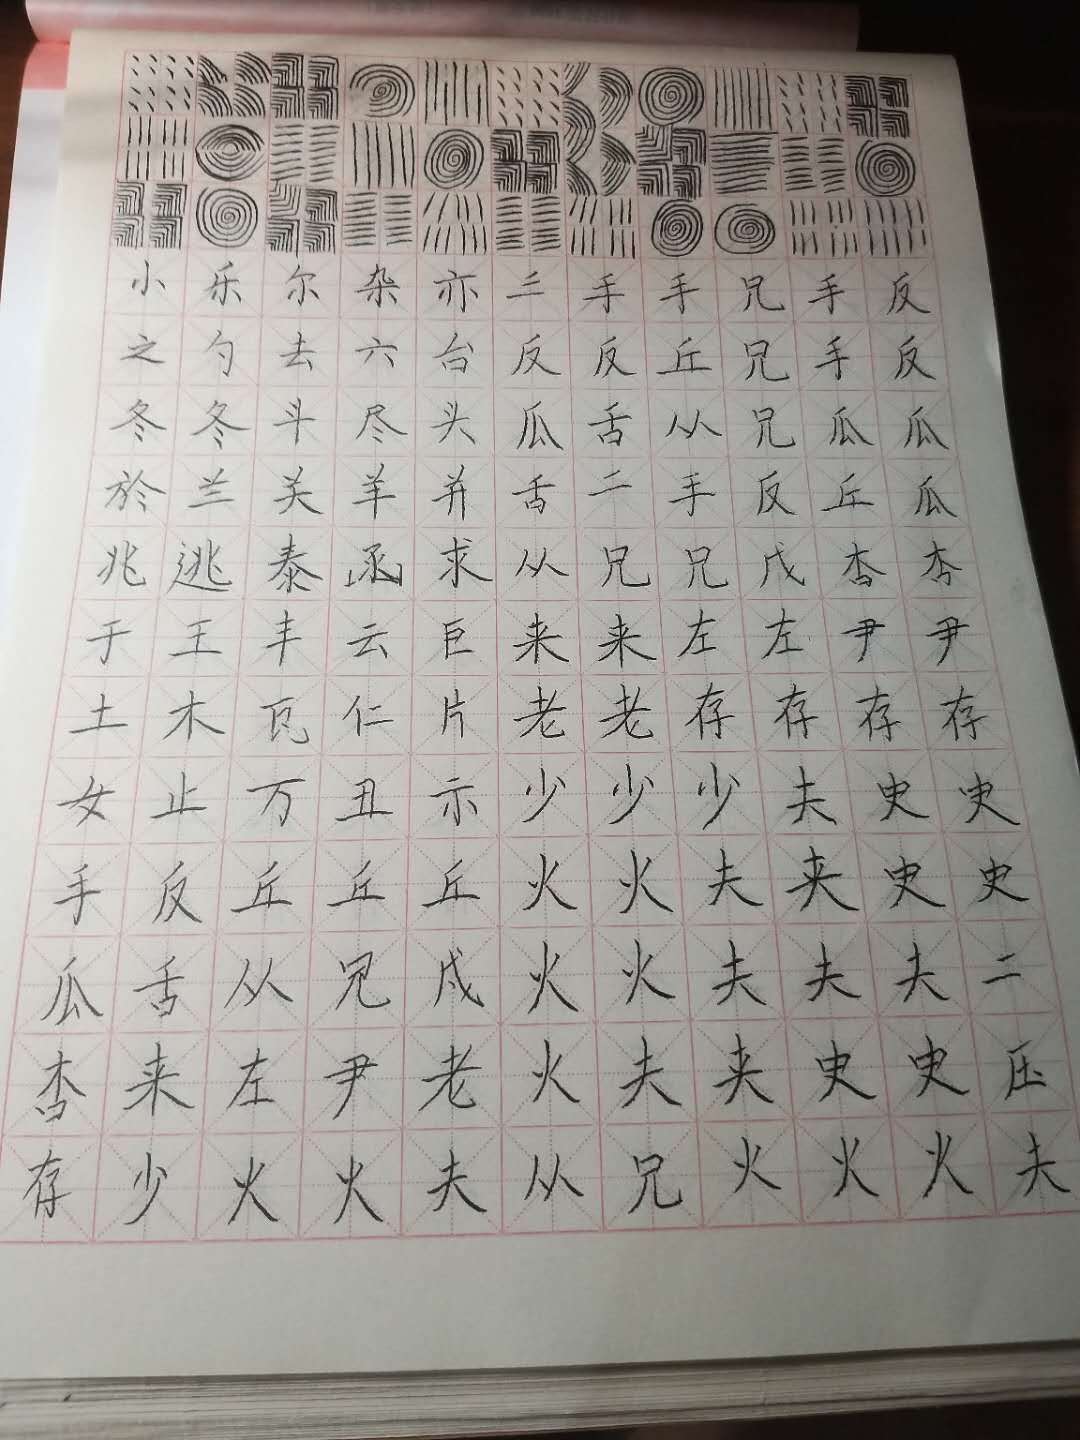 小乐尔杂亦三手手兄手反
之勺去六台反反丘兄手反
冬冬斗尽头瓜舌从兄瓜瓜
於兰关羊并舌二手反丘瓜
兆逃泰函求从兄兄戊杏杏
于王丰云巨来来左左尹尹
土木瓦仁片老老存存存存
女止万丑示少少少夫史史
手反丘丘丘火火夫夹史史
瓜舌从兄戍火火夫夫夫二
杏来左尹老火夫夹史史压
存少火火夫从兄火火火夫